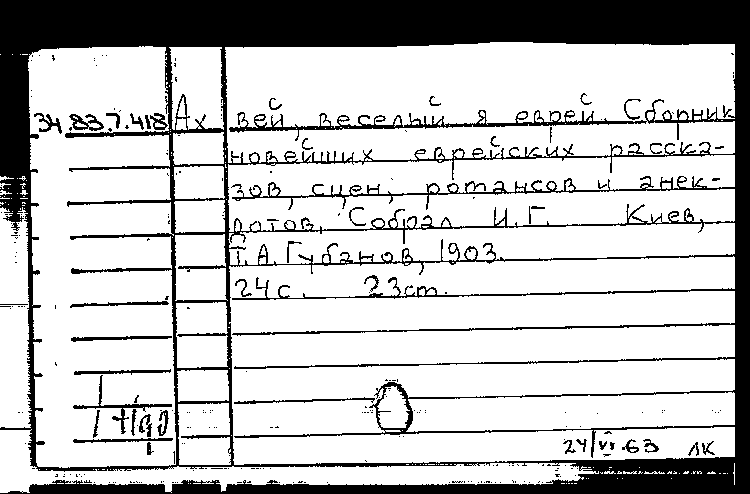 34.83.7.418 Ах вей, веселый я еврей. Сборник
новейших еврейских расска-
зов, сцен, романсов и анек-
дотов, Собрал И.Г. Киев,
Т.А. Губанов, 1903.
24 с. 23 cm.
24/VI.63 ЛК